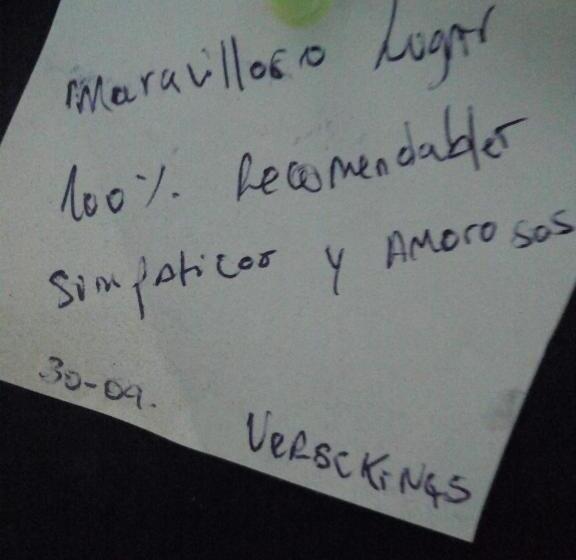 Maravilloso Lugar
100% Recomendables
Simpaticos y AMOROSOS
30-09.
VERSCKINGS